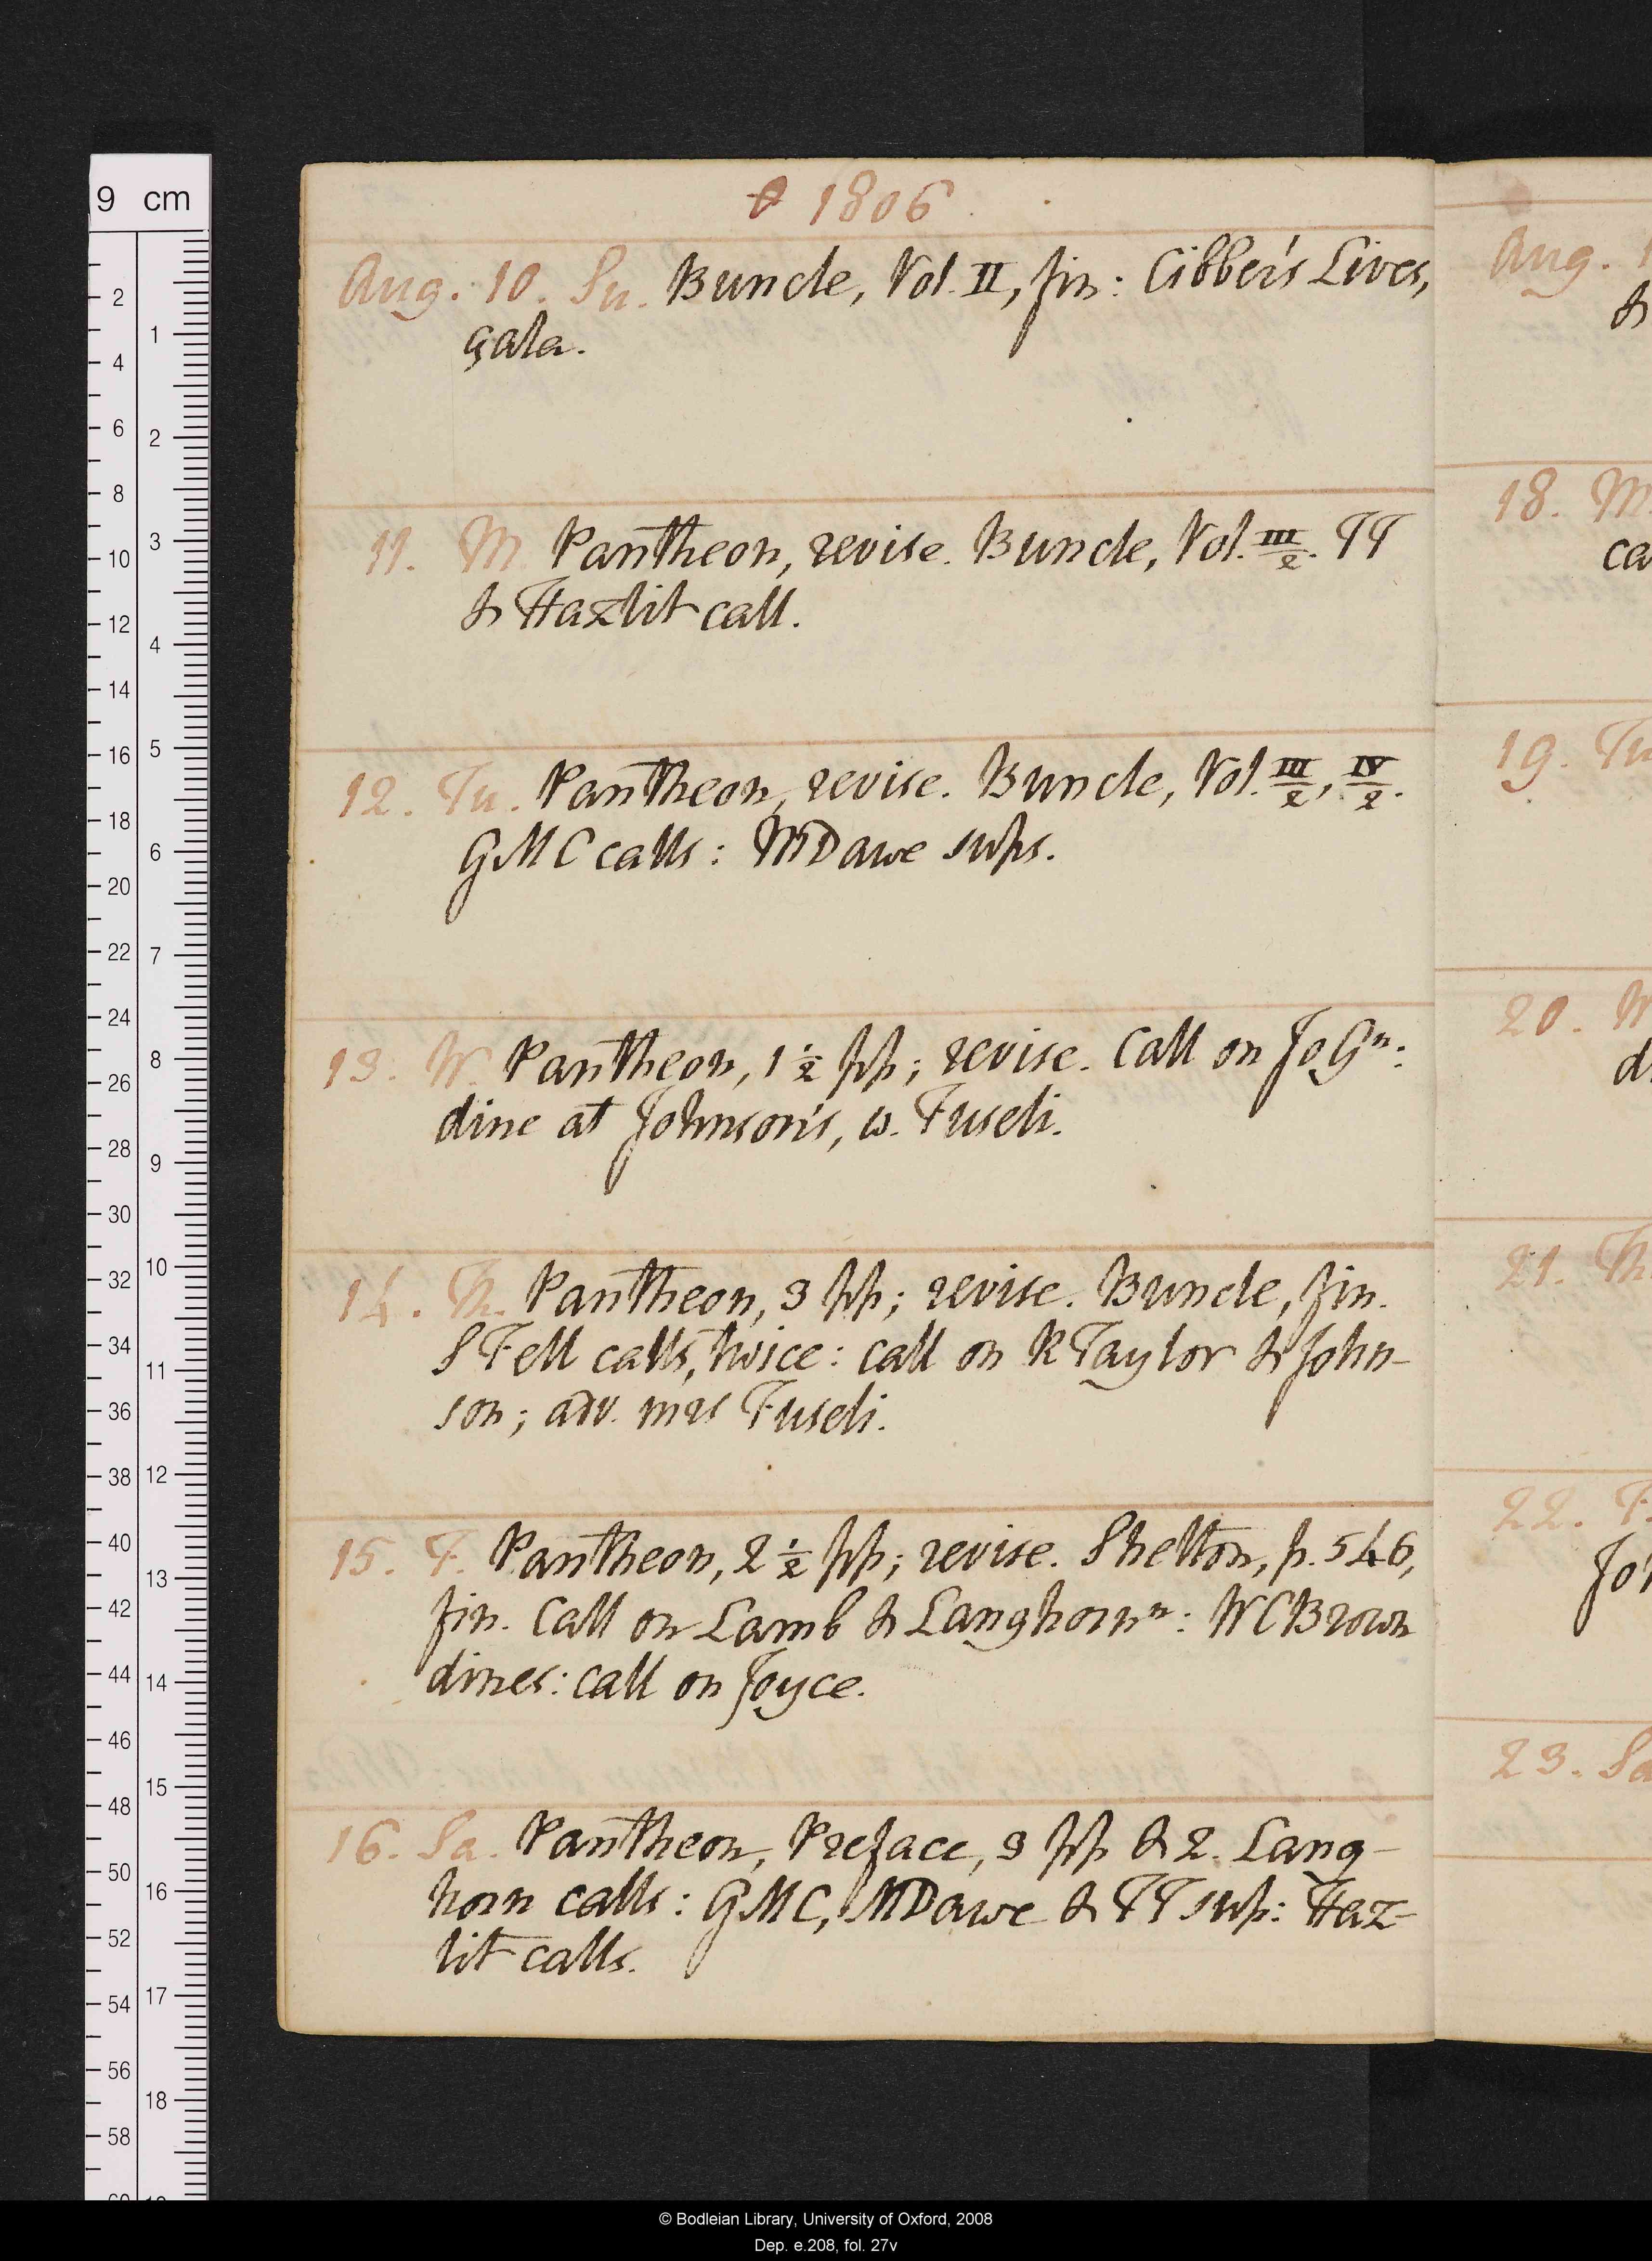 1806
Aug. 10. Su. Buncle, Vol. II, fin: Cibber's Lives,
çala.
11. M. Pantheon, revise. Buncle, Vol. III/2. TT
& Hazlit call.
12. Tu. Pantheon, revise. Buncle, Vol. III/2, IV/2.
GMC calls: MDawe sups.
13. W. Pantheon, 1 1/2 pp; revise. Call on JoGn:
dine at Johnson's, w. Fuseli.
14. Th. Pantheon, 3 pp; revise. Buncle, fin.
SFell calls, twice: call on RTaylor & John-
son; adv. mrs Fuseli.
15. F. Pantheon, 2 1/2 pp; revise. Shelton, p. 546,
fin. Call on Lamb & Langhorn n: WCBrown
dines: call on Joyce.
16. Sa. Pantheon, Preface, 3 pp & 2. Lang-
horn calls: GMC, MDawe & TT sup: Haz-
lit calls.
Aug. 1
&
18. M
ca
19. Tu
20. W
d
21. Th
22. F.
Jo
23. Sa
9 cm
© Bodleian Library, University of Oxford, 2008
Dep. e.208, fol. 27v